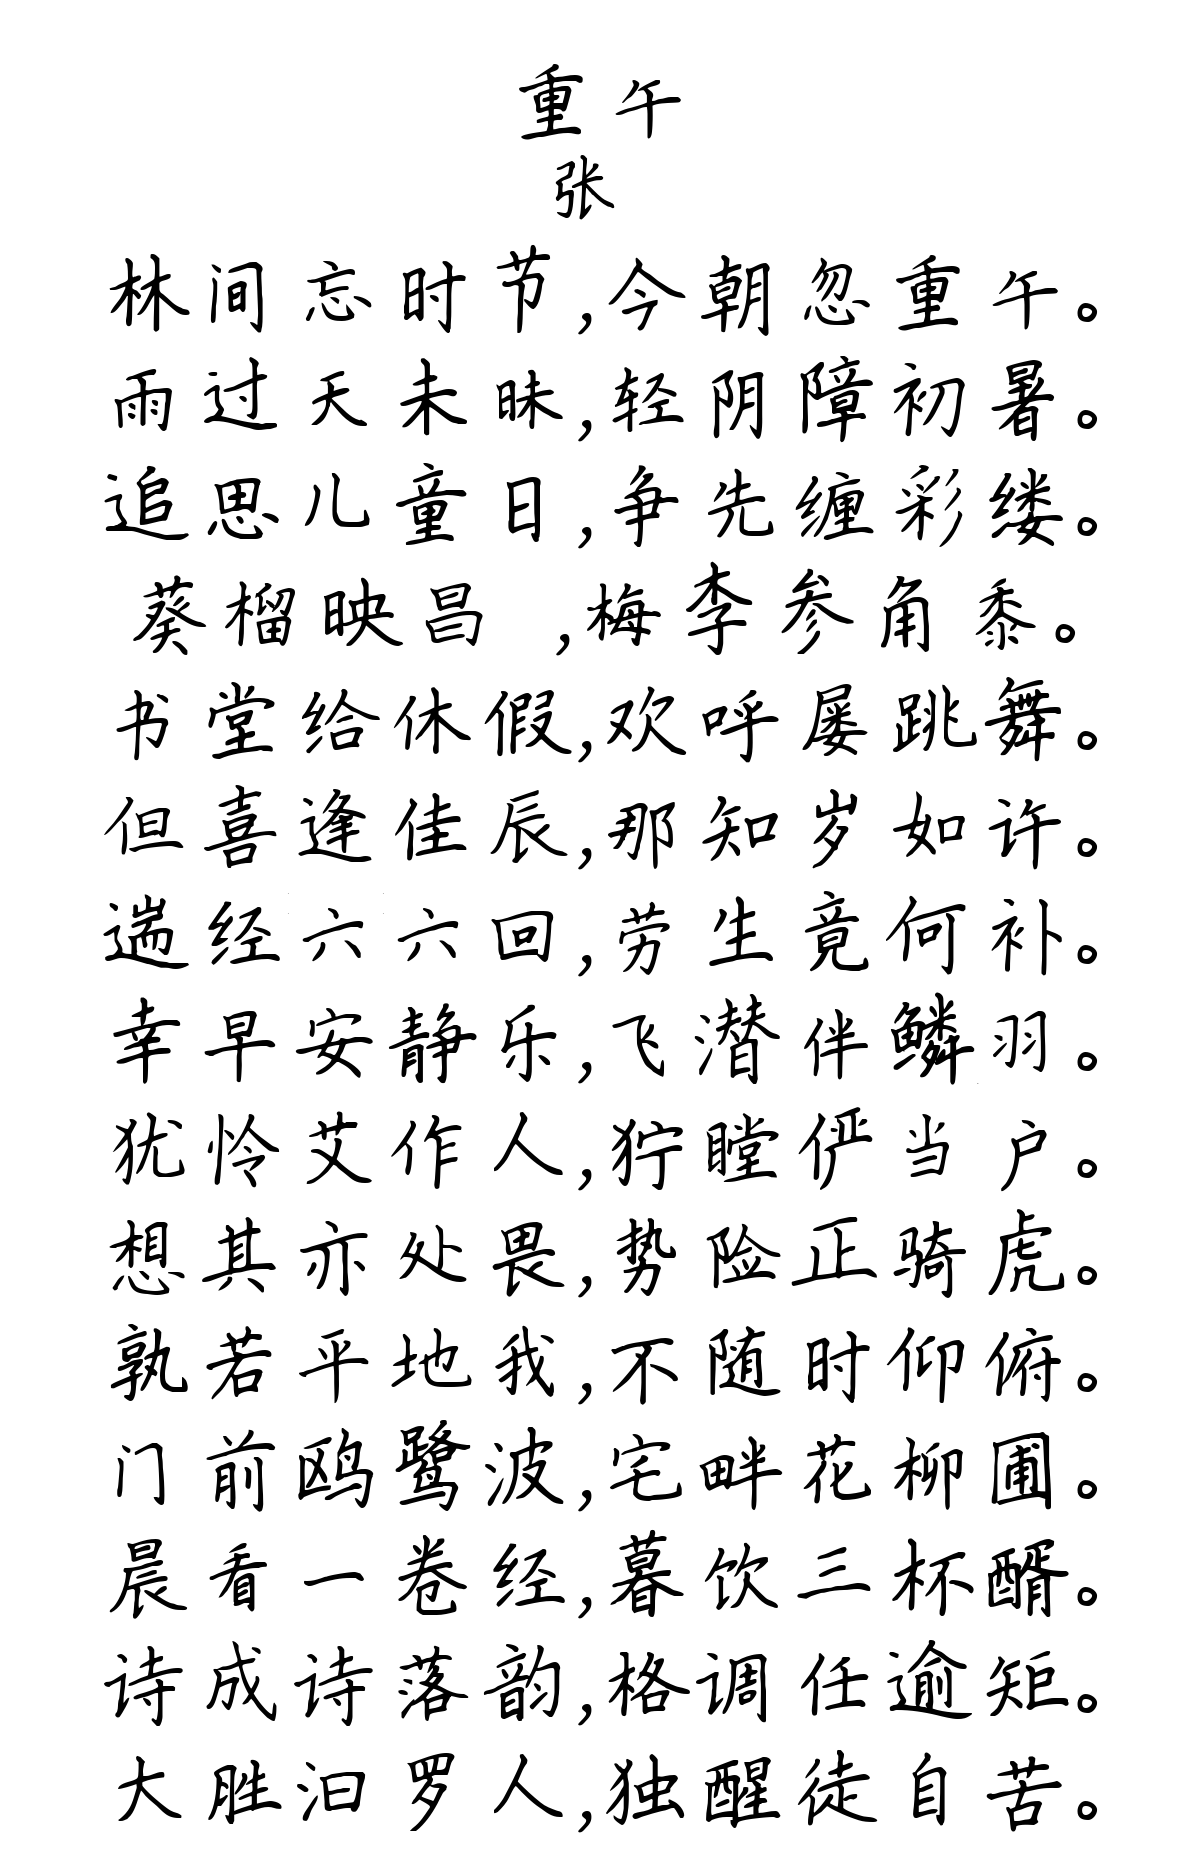 重午
张
林间忘时节,今朝忽重午。
雨过天未昧,轻阴障初暑。
追思儿童日,争先缠彩缕。
葵榴映昌 ,梅李参角黍。
书堂给休假,欢呼屡跳舞。
但喜逢佳辰,那知岁如许。
遄经六六回,劳生竟何补。
幸早安静乐,飞潜伴鳞羽。
犹怜艾作人,狞瞠俨当户。
想其亦处畏,势险正骑虎。
孰若平地我,不随时仰俯。
门前鸥鹭波,宅畔花柳圃。
晨看一卷经,暮饮三杯醑。
诗成诗落韵,格调任逾矩。
大胜汨罗人,独醒徒自苦。